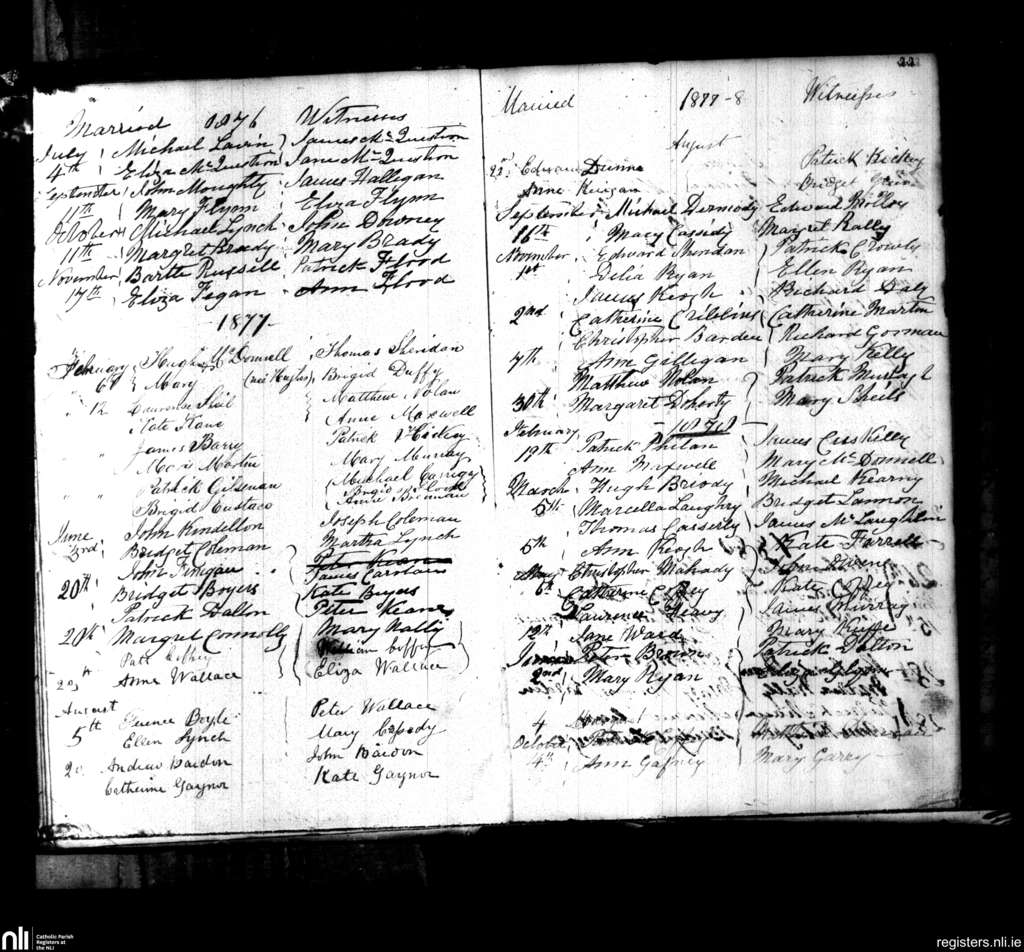 22
Married 1876 Witnesses
July Michael Lavin James McQuestion
4th Eliza McQuestion Jane McQuestion
September John Moughty James Hallegan
11th Mary Flynn Eliza Flynn
October Michael Lynch John Downey
11th Margret Brady Mary Brady
November Bartle Russell Patrick Flood
17th Eliza Fegan Ann Flood
- 1877 -
February Hugh McDonnell Thomas Sheridan
6th Mary (nee Hughes) Brigid Duffy
" 12 Laurence Shiel Matthew Nolan
Kate Kane Anne Maxwell
" " James Barry Patrick Hickey
Martin Mary Murray
" " Patrick Michael
Brigid Eustace Brigid Flood
Anne Brennan
June John Kindellon Joseph Coleman
3rd Bridget Coleman Martha Lynch
John Finegan Peter Keane
20th Bridget Boyers James Carolan
Kate Buyers
Patrick Dalton Peter Keane
20th Margret Connolly Mary Nally
Patt William
20th Anne Wallace Eliza Wallace
August
5th Terence Boyle Peter Wallace
Ellen Lynch Mary
20 Andrew Bardon John Bardon
Catherine Gaynor Kate Gaynor
Married 1877-8 Witnesses
August
22nd Edward Dunne Patrick Hickey
Anne Keegan Bridget
September Michael Dermody Edward Molloy
16th Mary Cassidy Margret Rally
November Edward Sheridan Patrick Crowly
1st Delia Ryan Ellen Ryan
James Keogh Richard Daly
2nd Catherine Cribbins Catherine Martin
Christopher Barden Richard Gorman
4th Ann Gilligan Mary Kelly
Matthew Nolan Patrick Murtagh
30th Margaret Doherty Mary Sheils
- 1878 -
February Patrick Phelan James Cuskelly
19th Ann Maxwell Mary McDonnell
March Hugh Briody Michael Kearny
5th Marcella Laughry Bridget Lennon
Thomas Casserly James McLaughlin
5th Ann Keogh Kate Farrell
May Christopher Mahady John
6th Catherine Kate
Laurence Heavy James Murray
12th Jane Ward Mary Keeffe
June Peter Brown Patrick Dalton
2nd Mary Ryan
4
October
4th Ann Gafney Mary Garry
nli Catholic Parish
Registers at
the NLI
registers.nli.ie